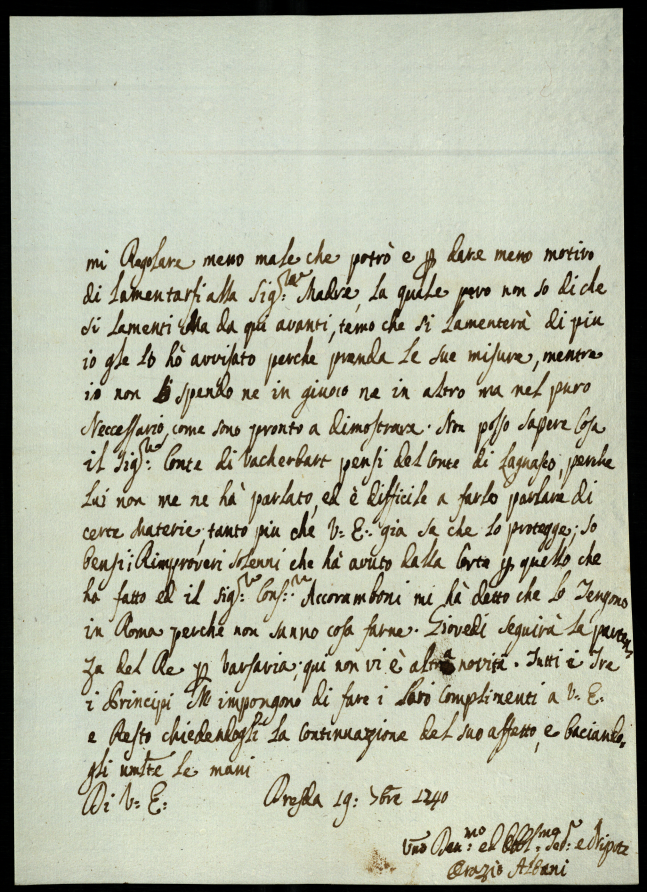 mi Regolare meno male che potrò e p dare meno motivo
di lamentarsi alla Sig:ra Madre, la quale pero non so di che
si lamenti Ma da qui avanti, temo che si lamenterà di piu
io gle lo hò avvisato perche prenda le sue misure, mentre
io non spendo ne in giuoco ne in altro ma nel puro
Neccessario, come sono pronto a dimostrare. Non posso sapere cosa
il Sig:re Conte di Vacherbart pensi del Conte di Lagnasco, perche
lui non me ne hà parlato, ed è difficile a farlo parlare di
certe Materie, tanto piu che V: E: gia sa che lo protegge; so
bensi i Rimproveri solenni che hà avuto dalla Corte p quello che
ha fatto ed il Sig:re Cons:re Accoramboni mi hà detto che lo Tengono
in Roma perche non sanno cosa farne. Giovedi seguirà la parten
za del Re p Varsavia; qui non vi è altra novità. Tutti e Tre
i Principi M impongono di fare i loro Complimenti a V: E:
e Resto chiedendogli la Continuazione del suo affetto, e baciando
gli umte le mani
Di V: E: Dresda 19: 7bre 1740
Umo Dev:mo ed Obbl:mo Ser:e e Nipote
Orazio Albani